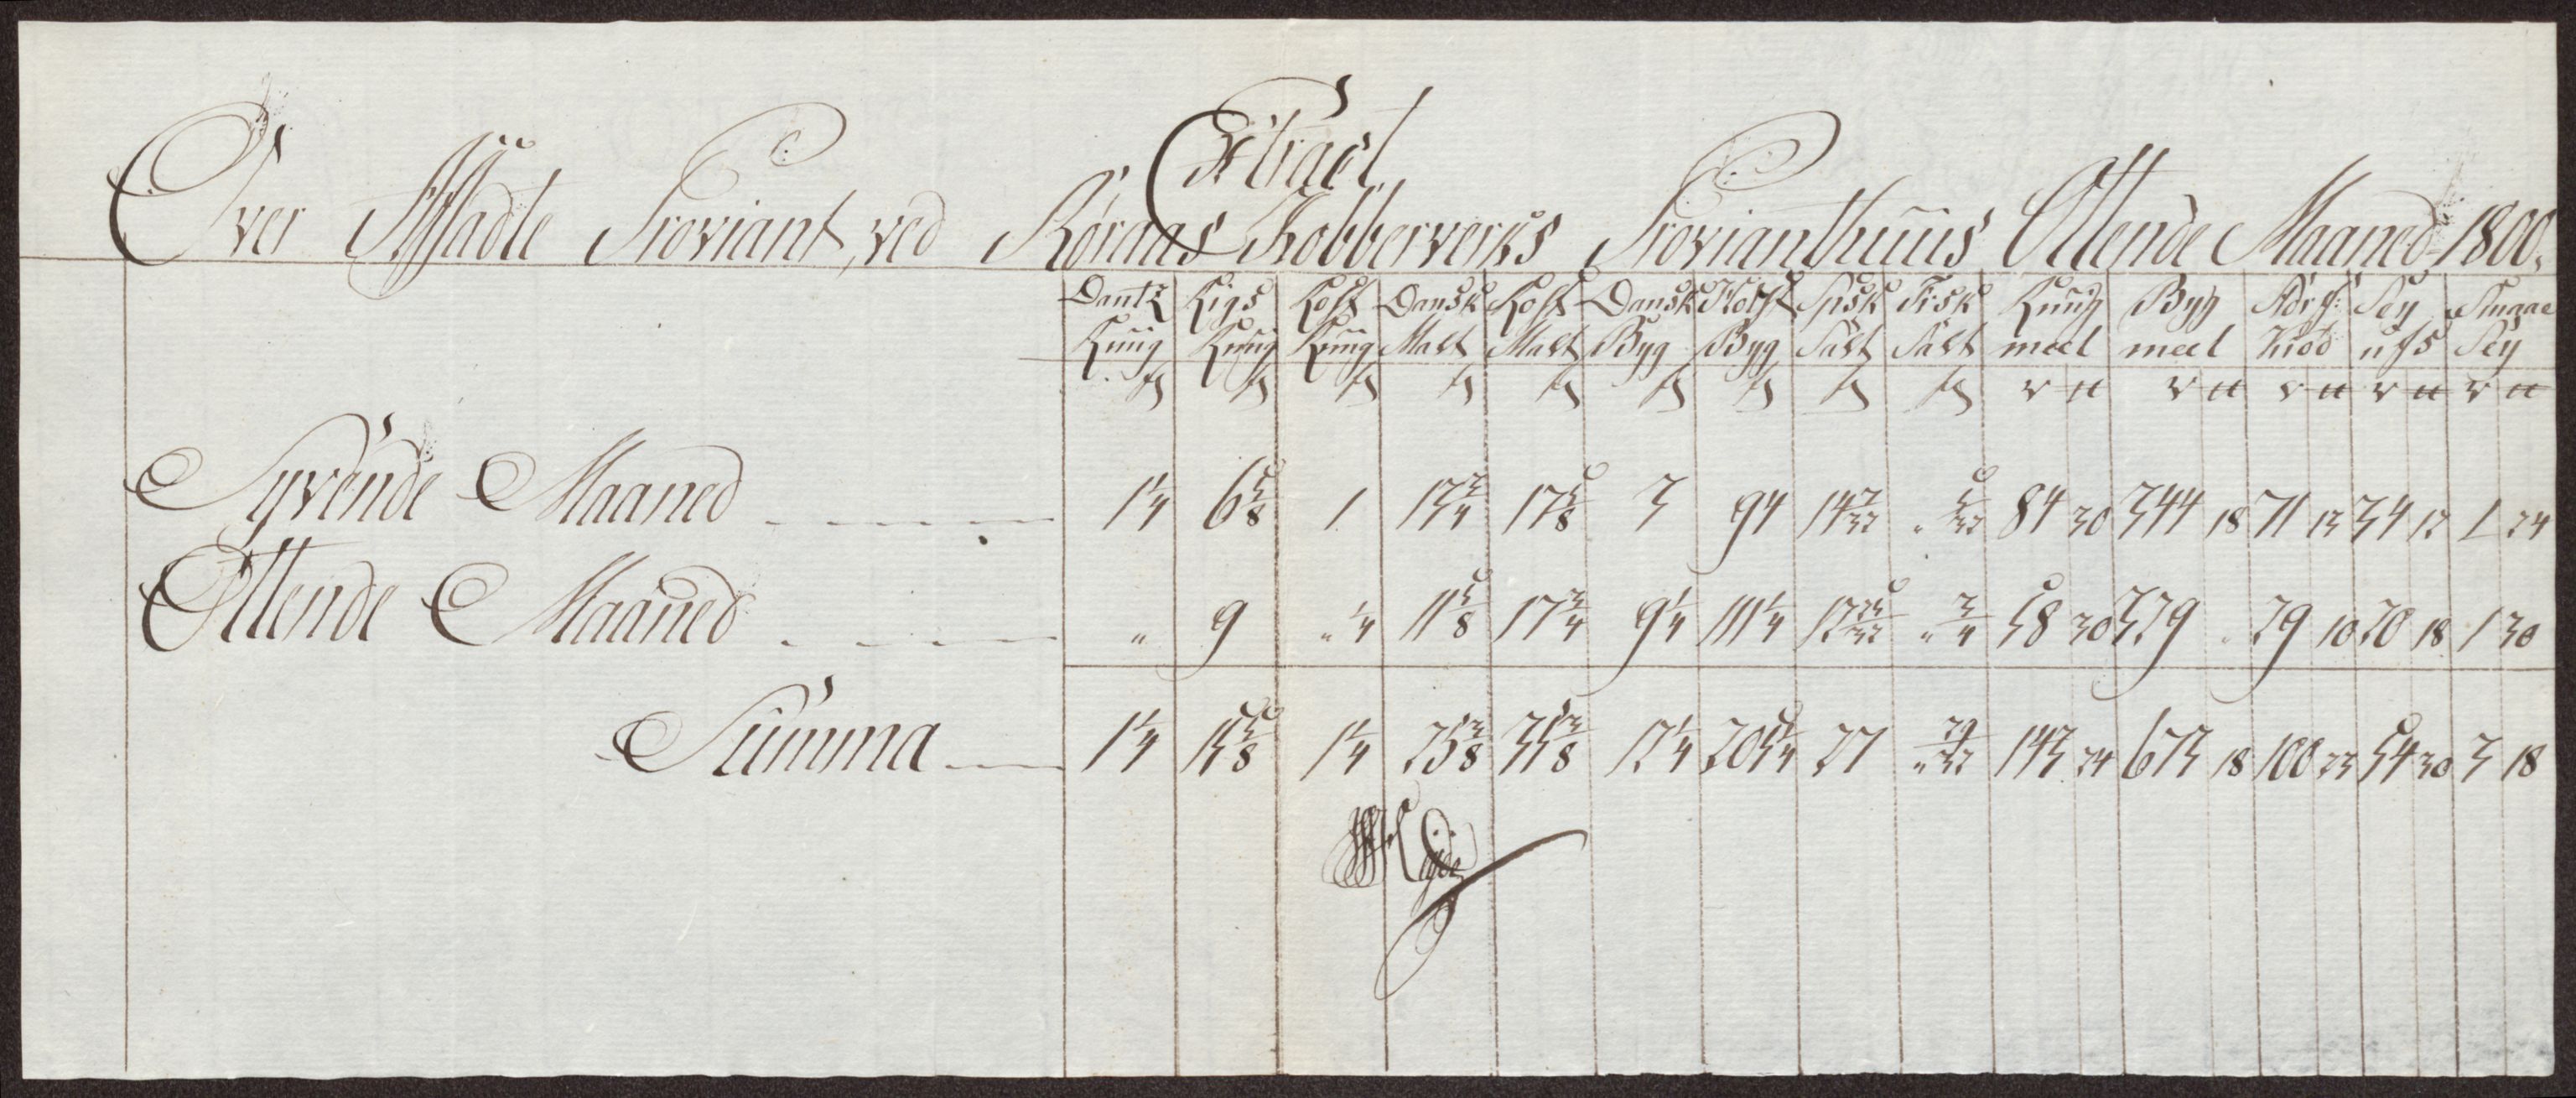 Extract
Over Afsadte Proviant, ved Röraas Kobberverks Provianthuus Ottende Maaned 1800.
Dantz Rug Rigs Rug Rost Rug Dansk Malt Rost Malt Dansk Byg Holst Byg Spsk Salt Fisk Salt Rug meel Byg meel Kiöd Sey Smaae Sey
Syvende Maaned 1 1/4 6 5/8 1 13 3/4 17 5/8 3 94 14 7/32 " 5/32 84 30 344 18 71 13 34 12 1 24
Ottende Maaned " 9 " 1/4 11 5/8 17 3/4 9 1/4 111 1/4 12 25/32 " 3/4 58 30 329 " 29 10 20 18 1 30
Summa 1 1/4 15 5/8 1 1/4 25 3/8 35 3/8 12 1/4 205 1/4 27 " 29/32 143 24 673 18 100 23 54 30 3 18